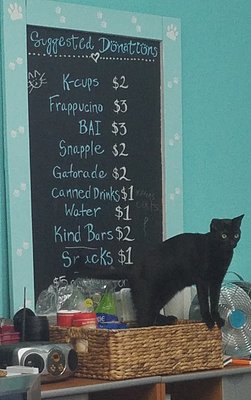 Suggested Donations
K-cups $2
Frappucino $3
BAI $3
Snapple $2
Gatorade $2
Canned Drinks $1
Water $1
Kind Bars $2
Snacks $1